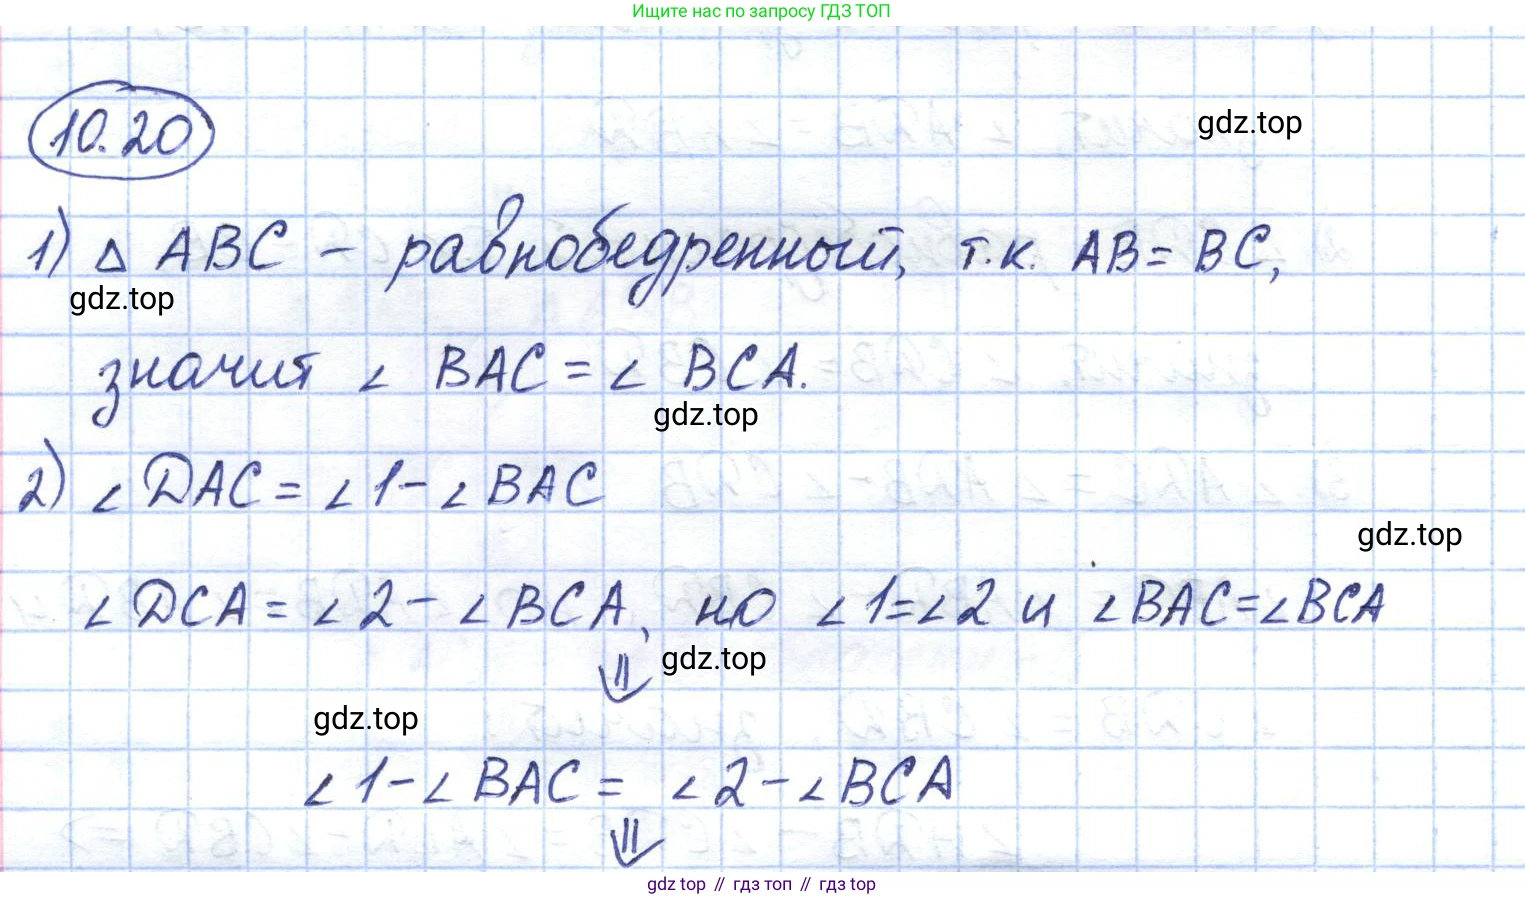 Ищите нас по запросу ГДЗ ТОП
10.20
gdz.top
1) △ ABC - равнобедренный, т.к. AB = BC,
gdz.top
значит ∠ BAC = ∠ BCA.
gdz.top
2) ∠ DAC = ∠ 1 - ∠ BAC
gdz.top
∠ DCA = ∠ 2 - ∠ BCA, но ∠ 1 = ∠ 2 и ∠ BAC = ∠ BCA
⇓ gdz.top
gdz.top
∠ 1 - ∠ BAC = ∠ 2 - ∠ BCA
⇓
gdz top // гдз топ // гдз top